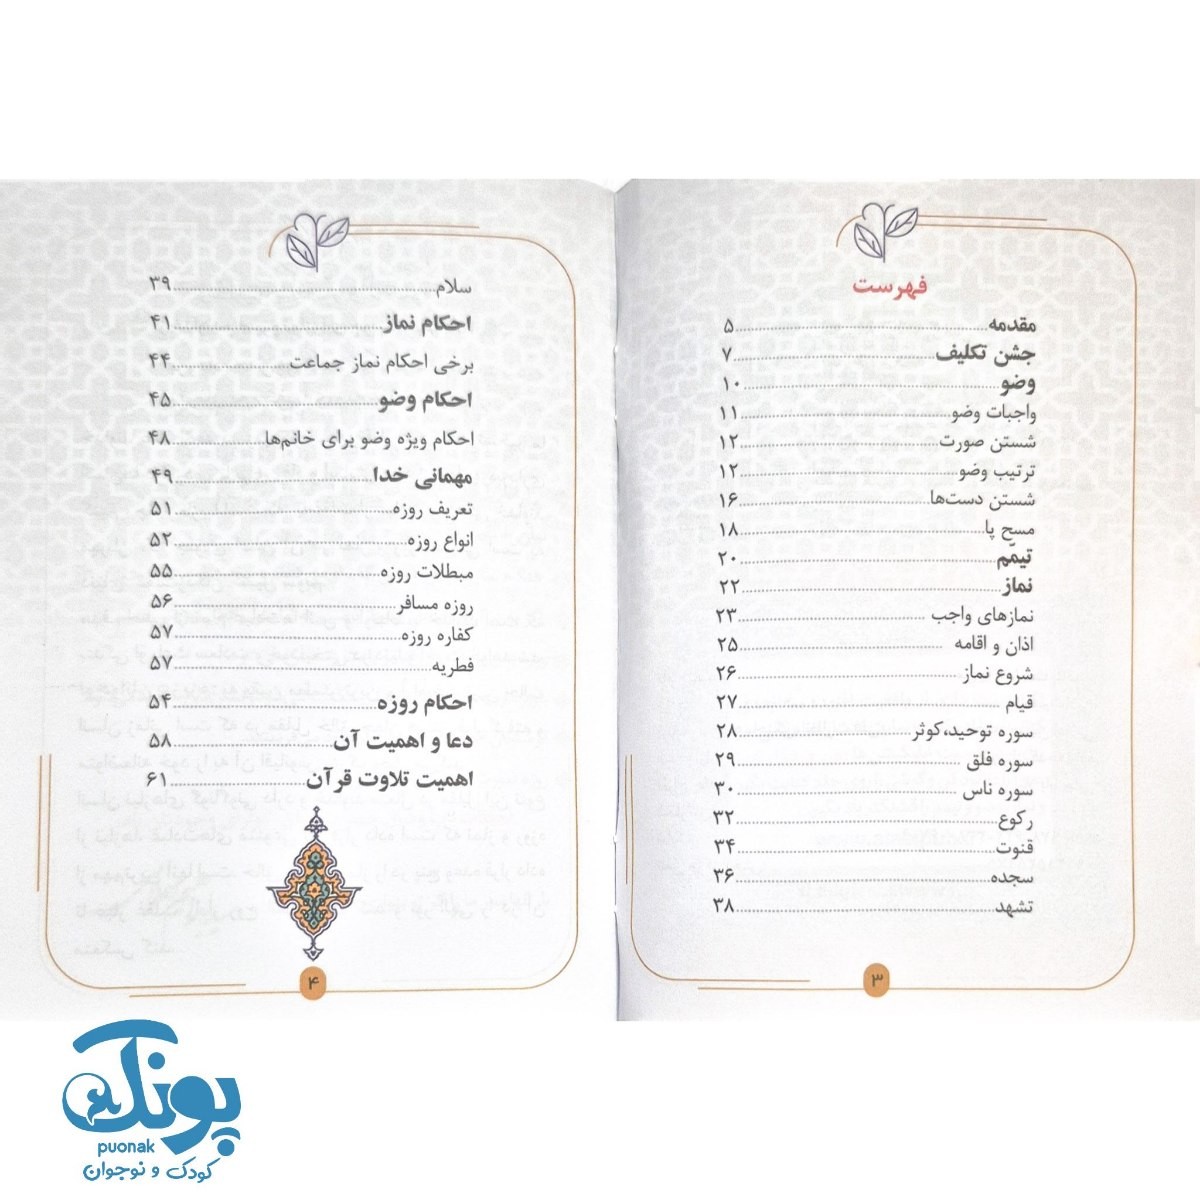 فهرست
مقدمه ۵
جشن تکلیف ۷
وضو ۱۰
واجبات وضو ۱۱
شستن صورت ۱۲
ترتیب وضو ۱۲
شستن دست‌ها ۱۶
مسح پا ۱۸
تیمّم ۲۰
نماز ۲۲
نمازهای واجب ۲۳
اذان و اقامه ۲۵
شروع نماز ۲۶
قیام ۲۷
سوره توحید،کوثر ۲۸
سوره فلق ۲۹
سوره ناس ۳۰
رکوع ۳۲
قنوت ۳۴
سجده ۳۶
تشهد ۳۸
۳
سلام ۳۹
احکام نماز ۴۱
برخی احکام نماز جماعت ۴۴
احکام وضو ۴۵
احکام ویژه وضو برای خانم‌ها ۴۸
مهمانی خدا ۴۹
تعریف روزه ۵۱
انواع روزه ۵۲
مبطلات روزه ۵۵
روزه مسافر ۵۶
کفاره روزه ۵۷
فطریه ۵۷
احکام روزه ۵۴
دعا و اهمیت آن ۵۸
اهمیت تلاوت قرآن ۶۱
۴
پونک
puonak
کودک و نوجوان